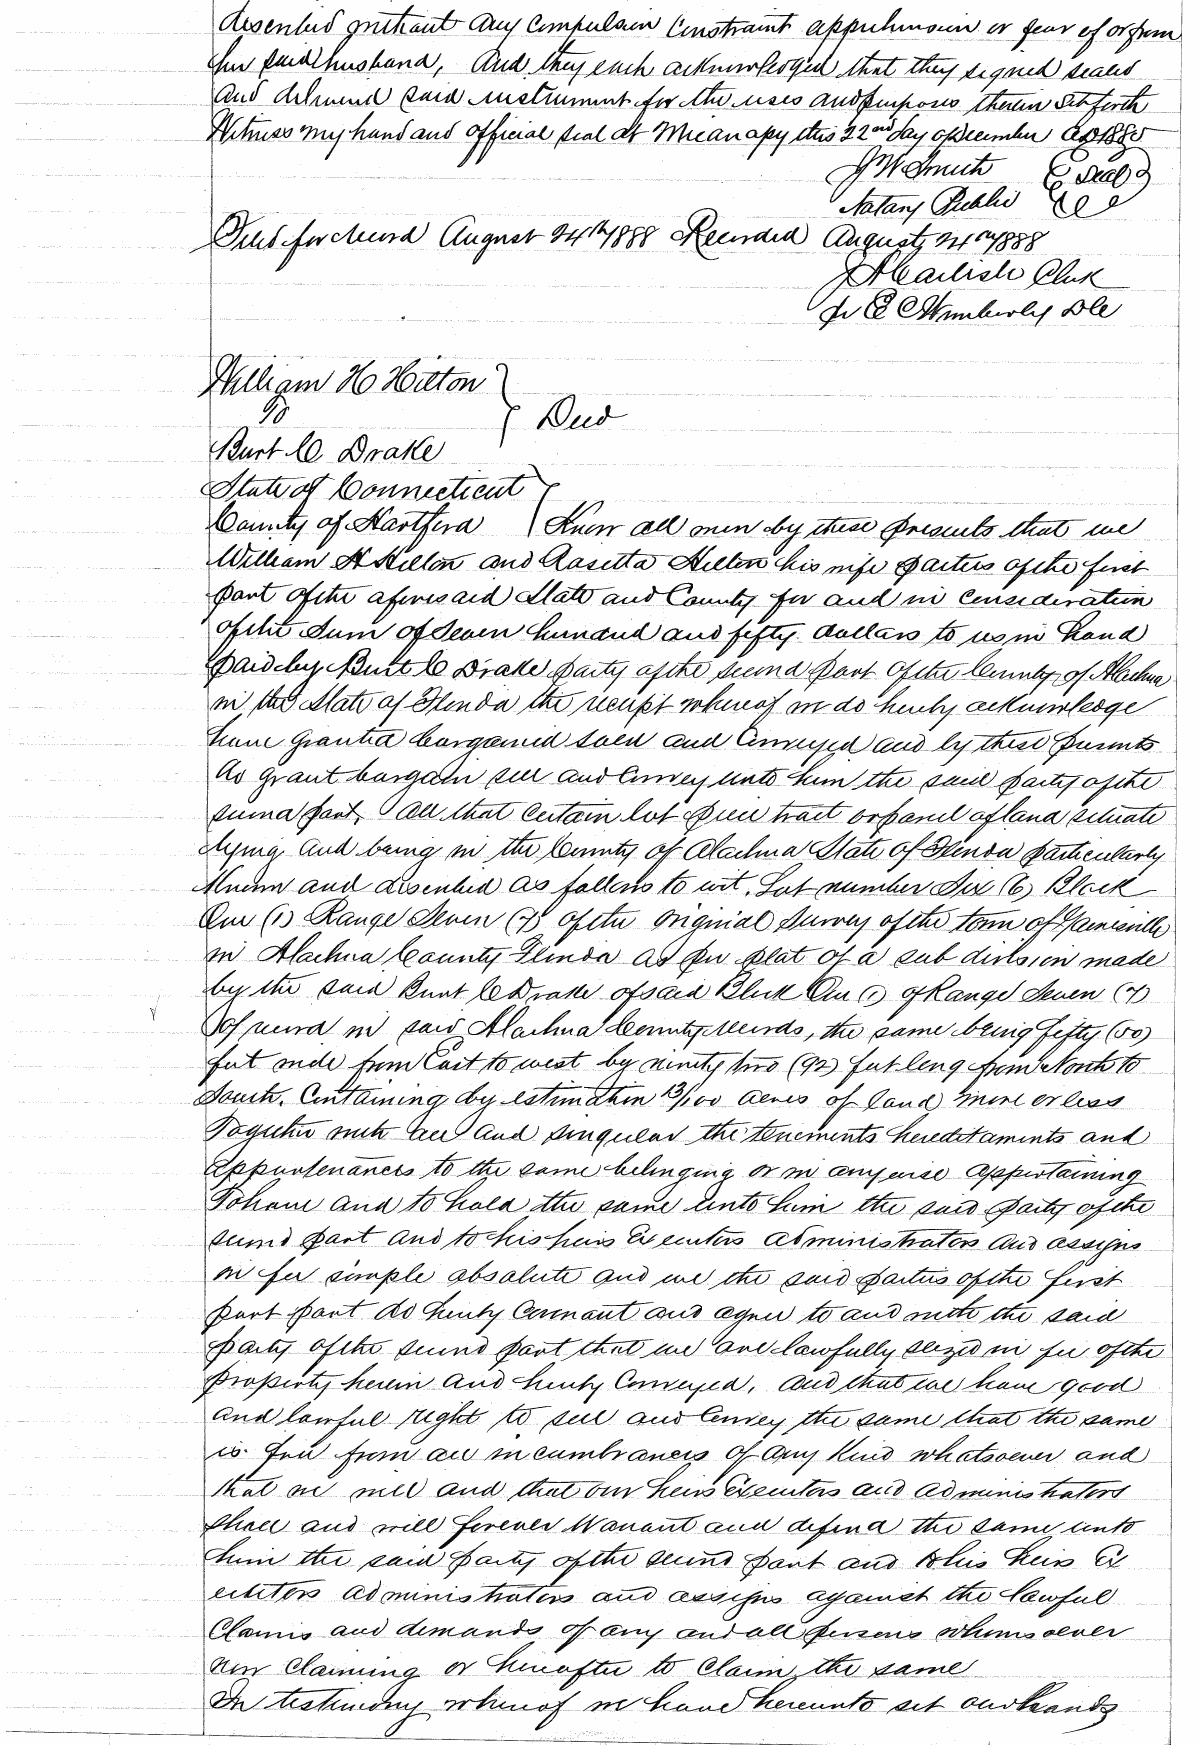 described without any compulsion constraint apprehension or fear of or from
her said husband, And they each acknowledged that they signed sealed
and delivered said instrument for the uses and purposes therein set forth
Witness my hand and official seal at Micanopy this 22nd day of December AD 1885
J W Smith (Seal)
Notary Public
Filed for record August 24th 1888 Recorded August 24th 1888
J A Carlisle Clerk
pr C C Wimberly DC
William H Hilton
To } Deed
Burt C Drake
State of Connecticut
County of Hartford Know all men by these presents that we
William H Hilton and Rosetta Hilton his wife parties of the first
part of the aforesaid State and County for and in consideration
of the sum of Seven hundred and fifty dollars to us in hand
paid by Burt C Drake party of the second part of the County of Alachua
in the State of Florida the receipt whereof we do hereby acknowledge
have granted bargained sold and conveyed and by these presents
do grant bargain sell and convey unto him the said party of the
second part, All that certain lot piece tract or parcel of land situate
lying and being in the County of Alachua State of Florida particularly
known and described as follows to wit, Lot number Six (6) Block
One (1) Range Seven (7) of the original Survey of the town of Gainesville
in Alachua County Florida as per plat of a sub division made
by the said Burt C Drake of said Block One (1) of Range Seven (7)
of record in said Alachua County records, the same being fifty (50)
feet wide from East to west by ninety two (92) feet long from North to
South. Containing by estimation 13/100 acres of land more or less
Together with all and singular the tenements hereditaments and
appurtenances to the same belonging or in anywise appertaining
To have and to hold the same unto him the said party of the
second part and to his heirs Executors administrators and assigns
in fee simple absolute and we the said parties of the first
part part do hereby covenant and agree to and with the said
party of the second part that we are lawfully seized in fee of the
property herein and hereby conveyed, and that we have good
and lawful right to sell and convey the same that the same
is free from all incumbrances of any kind whatsoever and
that we will and that our heirs Executors and administrators
shall and will forever Warrant and defend the same unto
him the said party of the second part and to his heirs Ex
ecutors administrators and assigns against the lawful
claims and demands of any and all persons whomsoever
now claiming or hereafter to claim the same
In testimony whereof we have hereunto set our hands